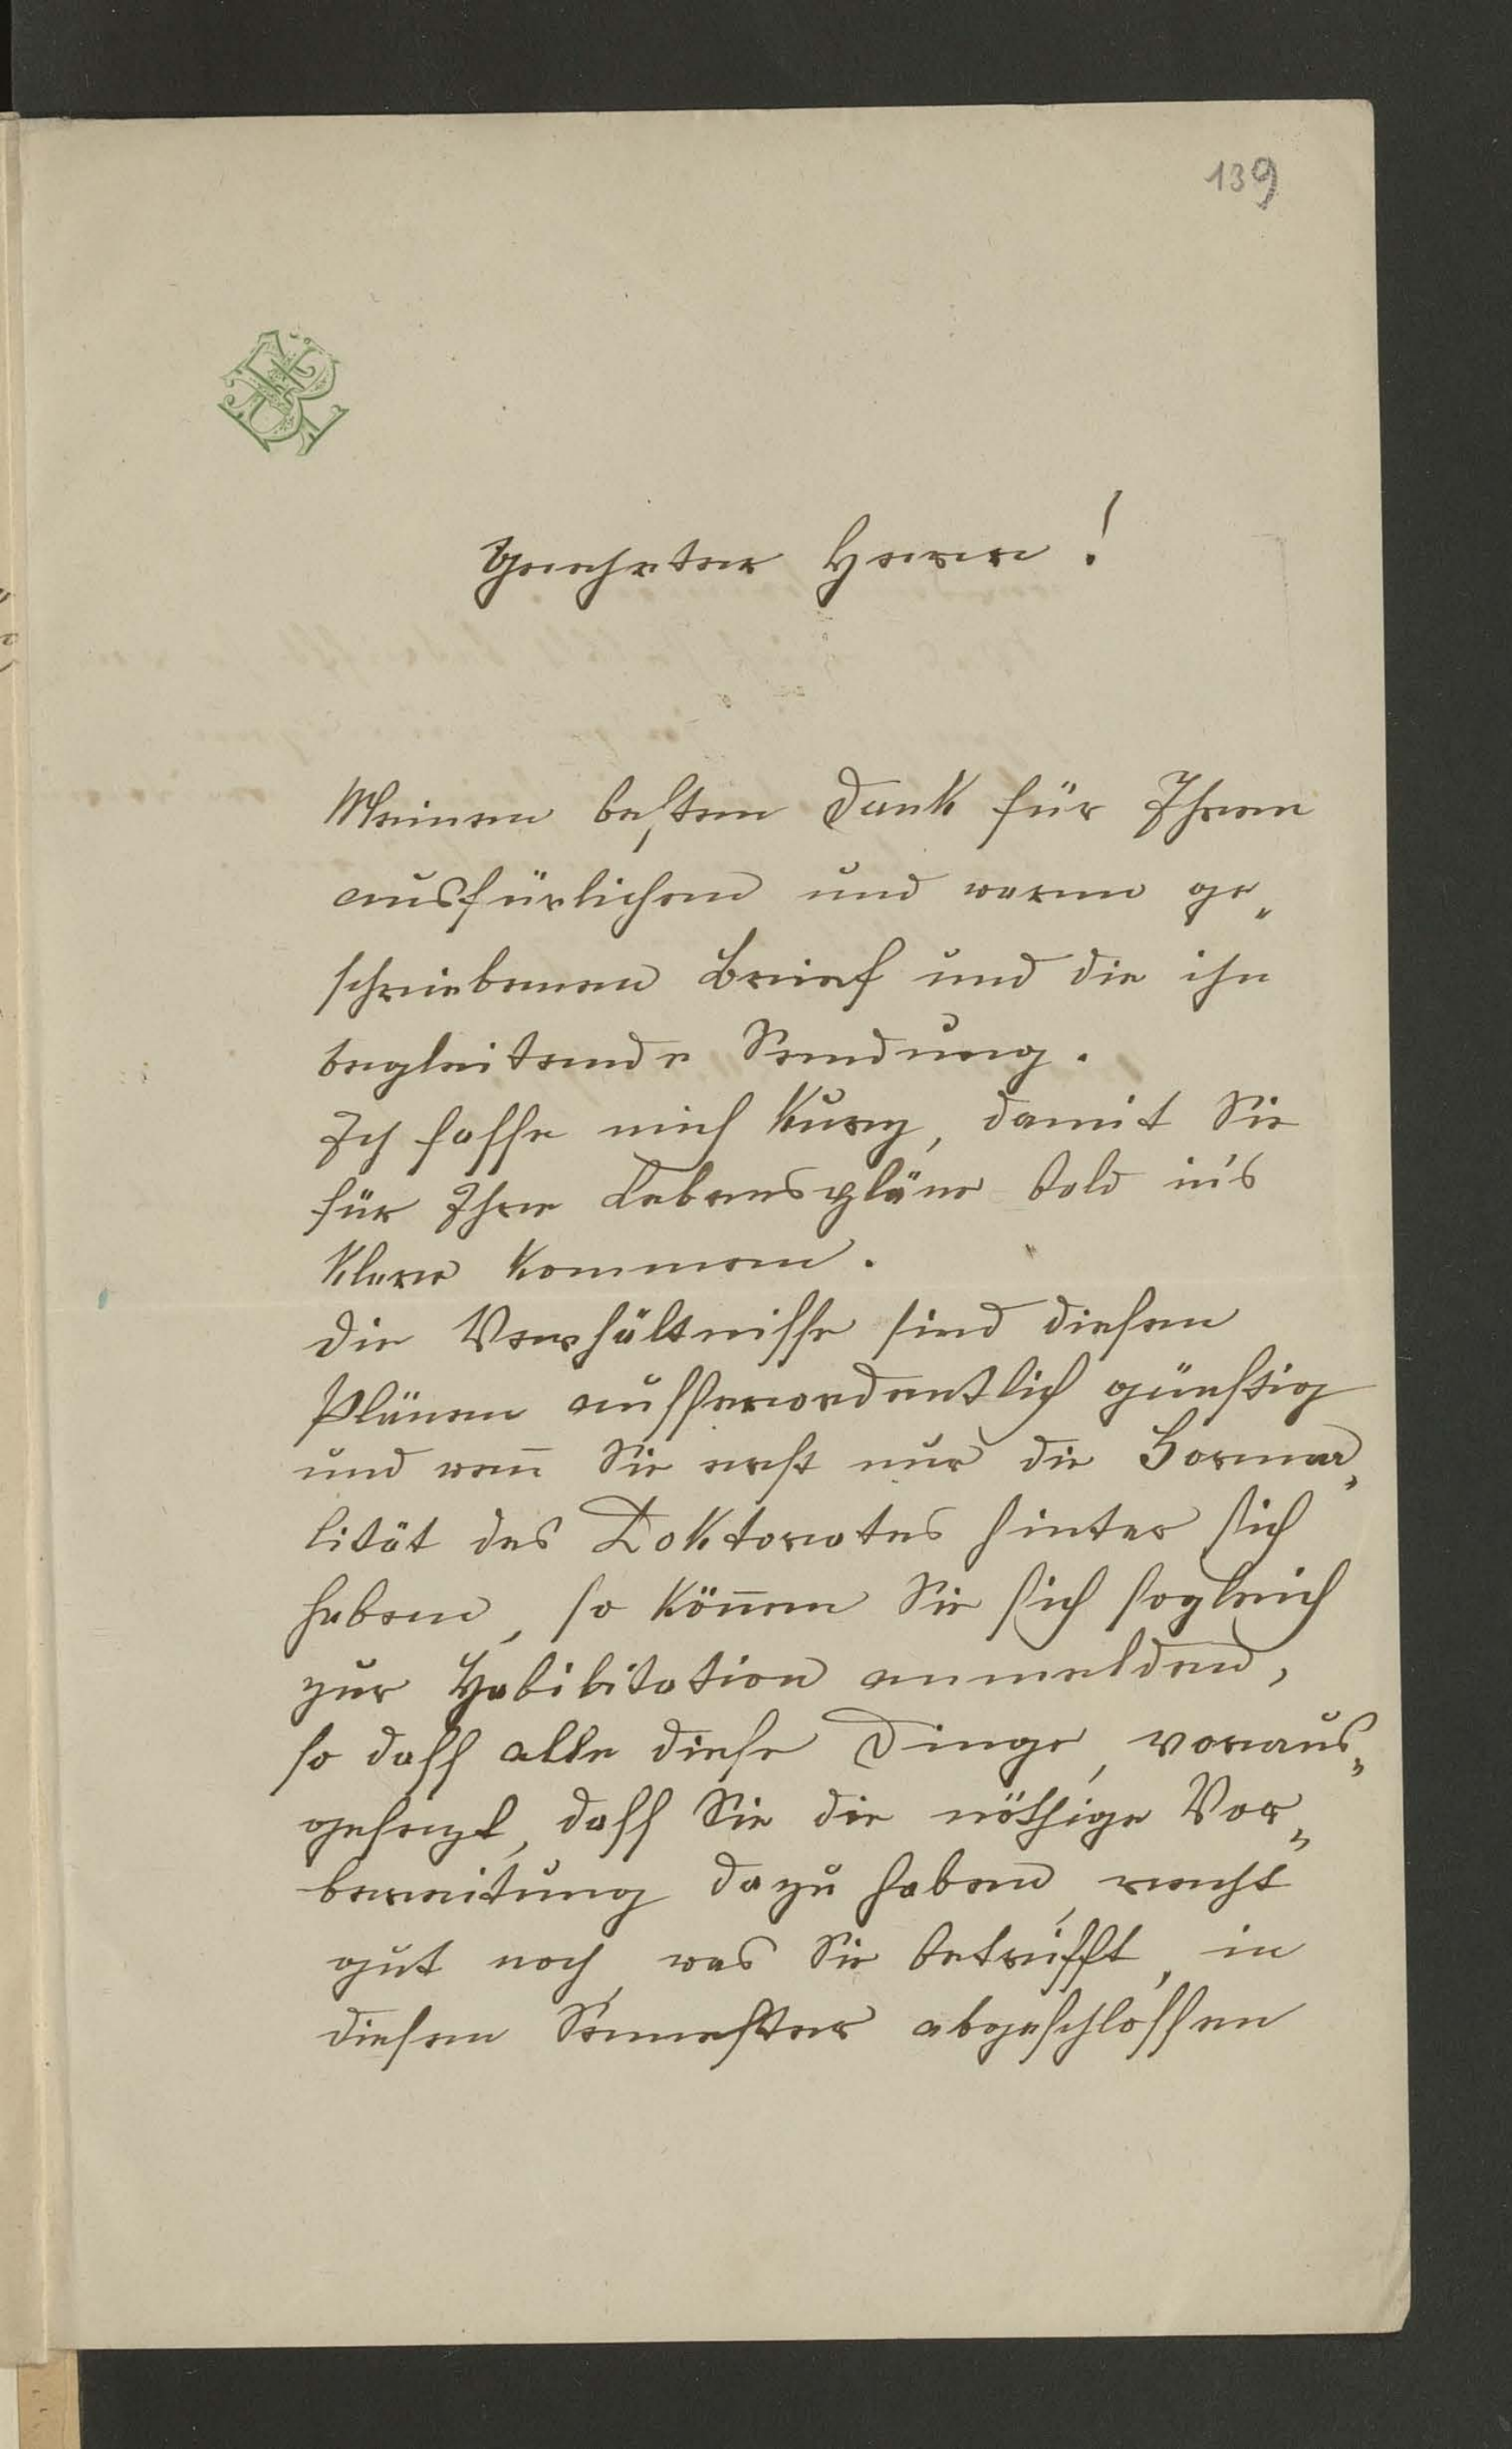 139
Geehrter Herr!
Meinen besten Dank für Ihren
ausfürlichen und warm ge„
schriebenen Brief und die ihn
begleitende Sendung.
Ich fasse mich kurz, damit Sie
für Ihre Lebenspläne bald in's
Klare kommen.
Die Verhältnisse sind diesen
Plänen aussserordentlich günstig
und weñ Sie erst nur die Forma„
lität des Doktorates hinter sich
haben, so köñen Sie sich sogleich
zur Habilitation anmelden,
so dass alle diese Dinge, voraus„
gesezt, dass Sie die nöthige Vor„
bereitung dazu haben, recht
gut noch, was Sie betrifft, in
diesem Semester abgeschlossen